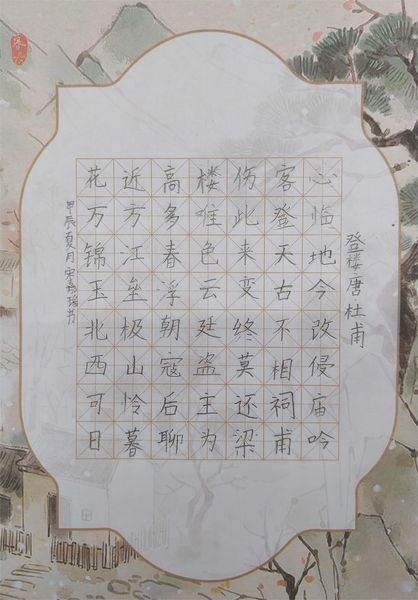 登楼 唐 杜甫
花近高楼伤客心
万方多难此登临
锦江春色来天地
玉垒浮云变古今
北极朝廷终不改
西山寇盗莫相侵
可怜后主还祠庙
日暮聊为梁甫吟
甲辰夏月宋书